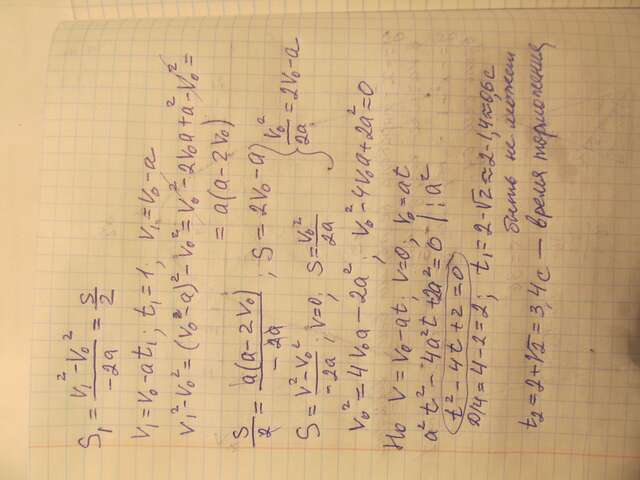 S₁ = (V₁² - V₀²)/(-2a) = S/2
V₁ = V₀ - at₁; t₁ = 1; V₁ = V₀ - a
V₁² - V₀² = (V₀² - a)² - V₀² = V₀² - 2V₀a + a² - V₀² =
= a(a - 2V₀)
S/2 = a(a - 2V₀)/(-2a); S = 2V₀ - a } V₀²/2a = 2V₀ - a
S = (V² - V₀²)/(-2a); V = 0; S = V₀²/2a
V₀² = 4V₀a - 2a²; V₀² - 4V₀a + 2a² = 0
Но V = V₀ - at; V = 0; V₀ = at
a²t² - 4a²t + 2a² = 0 | : a²
t² - 4t + 2 = 0
D/4 = 4 - 2 = 2; t₁ = 2 - √2 ≈ 2 - 1,4 ≈ 0,6 c
быть не может
t₂ = 2 + √2 = 3,4 с — время торможения